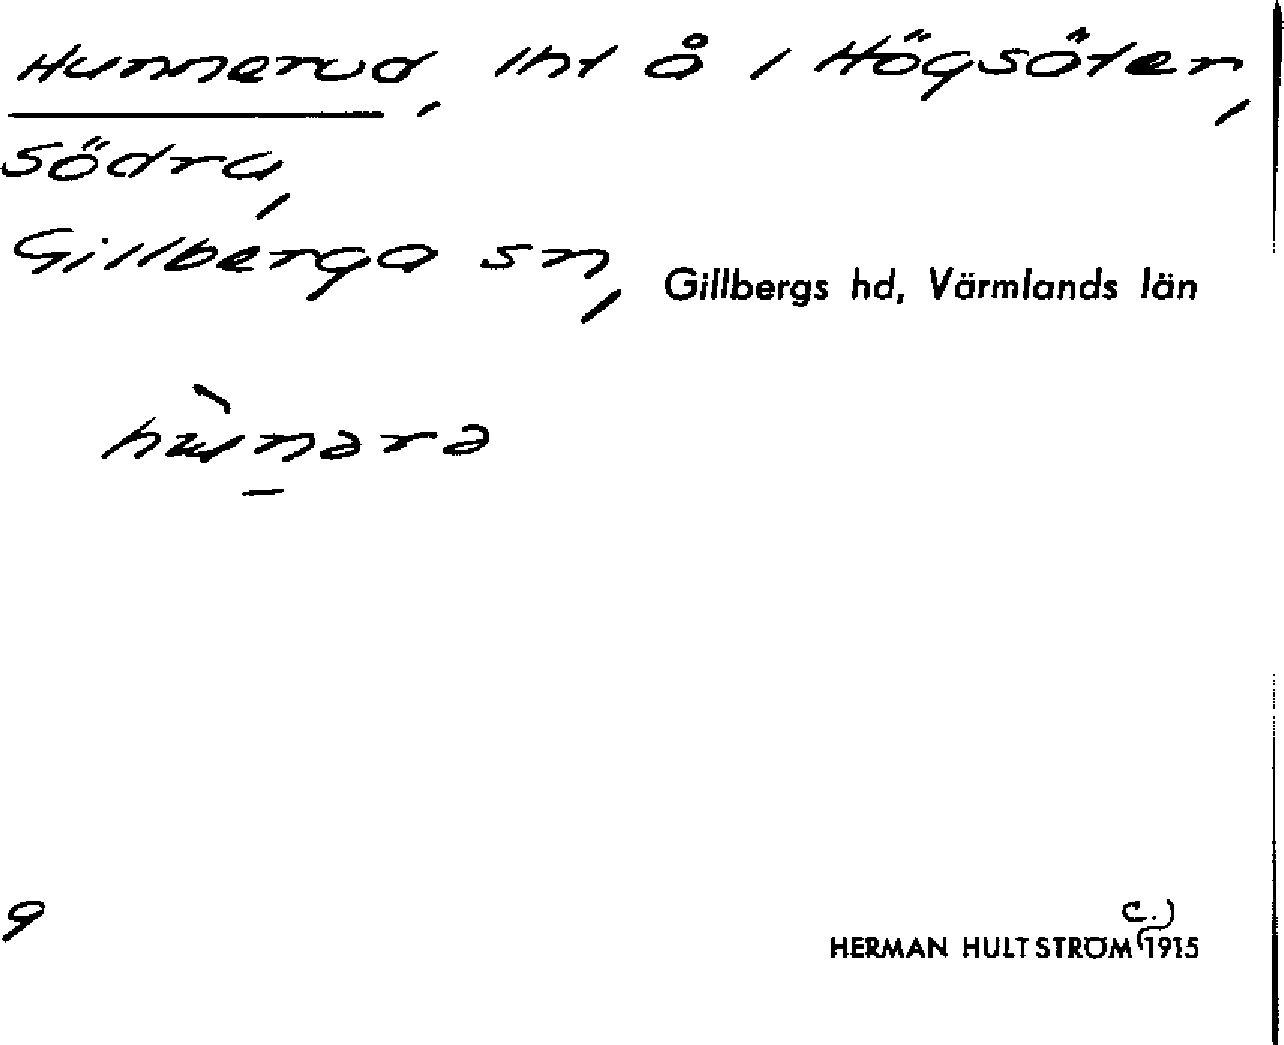 Hunnerud, lht å / Högsäter,
Södra,
Gillberga sn, Gillbergs hd, Värmlands län
9
c.)
HERMAN HULTSTRÖM 1915